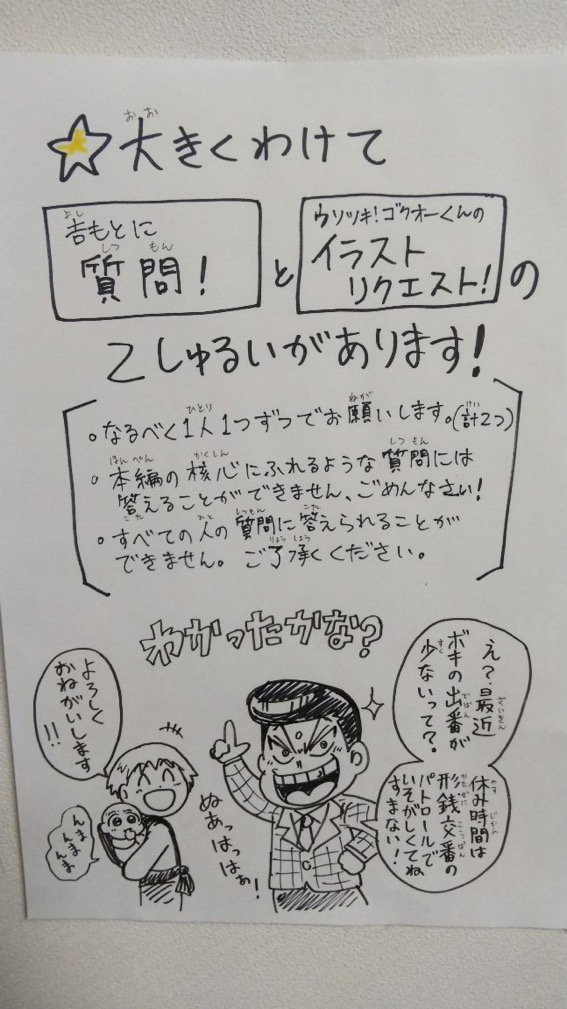 ☆大きくわけて
吉もとに
質問!
と
ウソツキ!ゴクオーくんの
イラスト
リクエスト!
の
2しゅるいがあります!
。なるべく1人1つずつでお願いします。(計2つ)
。本編の核心にふれるような質問には
答えることができません、ごめんなさい!
。すべての人の質問に答えられることが
できません。ご了承ください。
わかったかな?
え?最近
ボキの出番が
少ないって?
休み時間は
形銭交番の
パトロールで
いそがしくてね
すまない!
よろしく
おねがいします
!!
んま
んまま
んま
ぬあっはっはぁ!